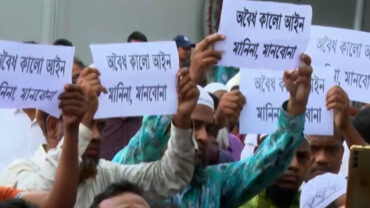 অবৈধ কালো আইন
মানিনা, মানবোনা
অবৈধ কালো আইন
মানিনা, মানবোনা
অবৈধ কালো আইন
মানিনা, মানবোনা
অবৈধ কালো আইন
মানিনা, মানবোনা